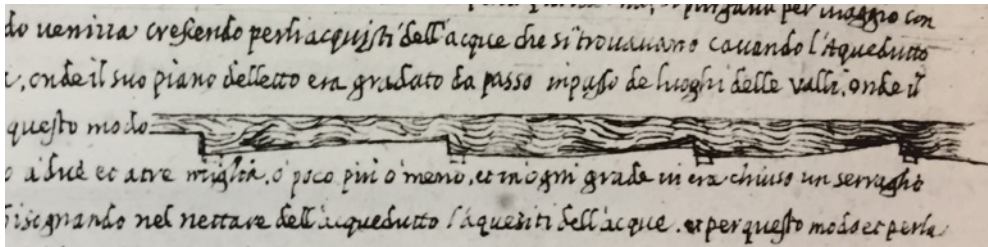 per viaggio con
do veniua cresčendo per li acquisti dell'acque che si trouauano cauando l'Aquedutto
onde il suo piano del letto era gradato da passo in passo de luoghi delle valli, onde il
questo modo
a due et a tre miglia, o poco piu o meno, et in ogni grade ui era chiuso un serraglio
bisognando nel nettare dell'acquedutto l'aquesiti dell'acque. et per questo modo et per la